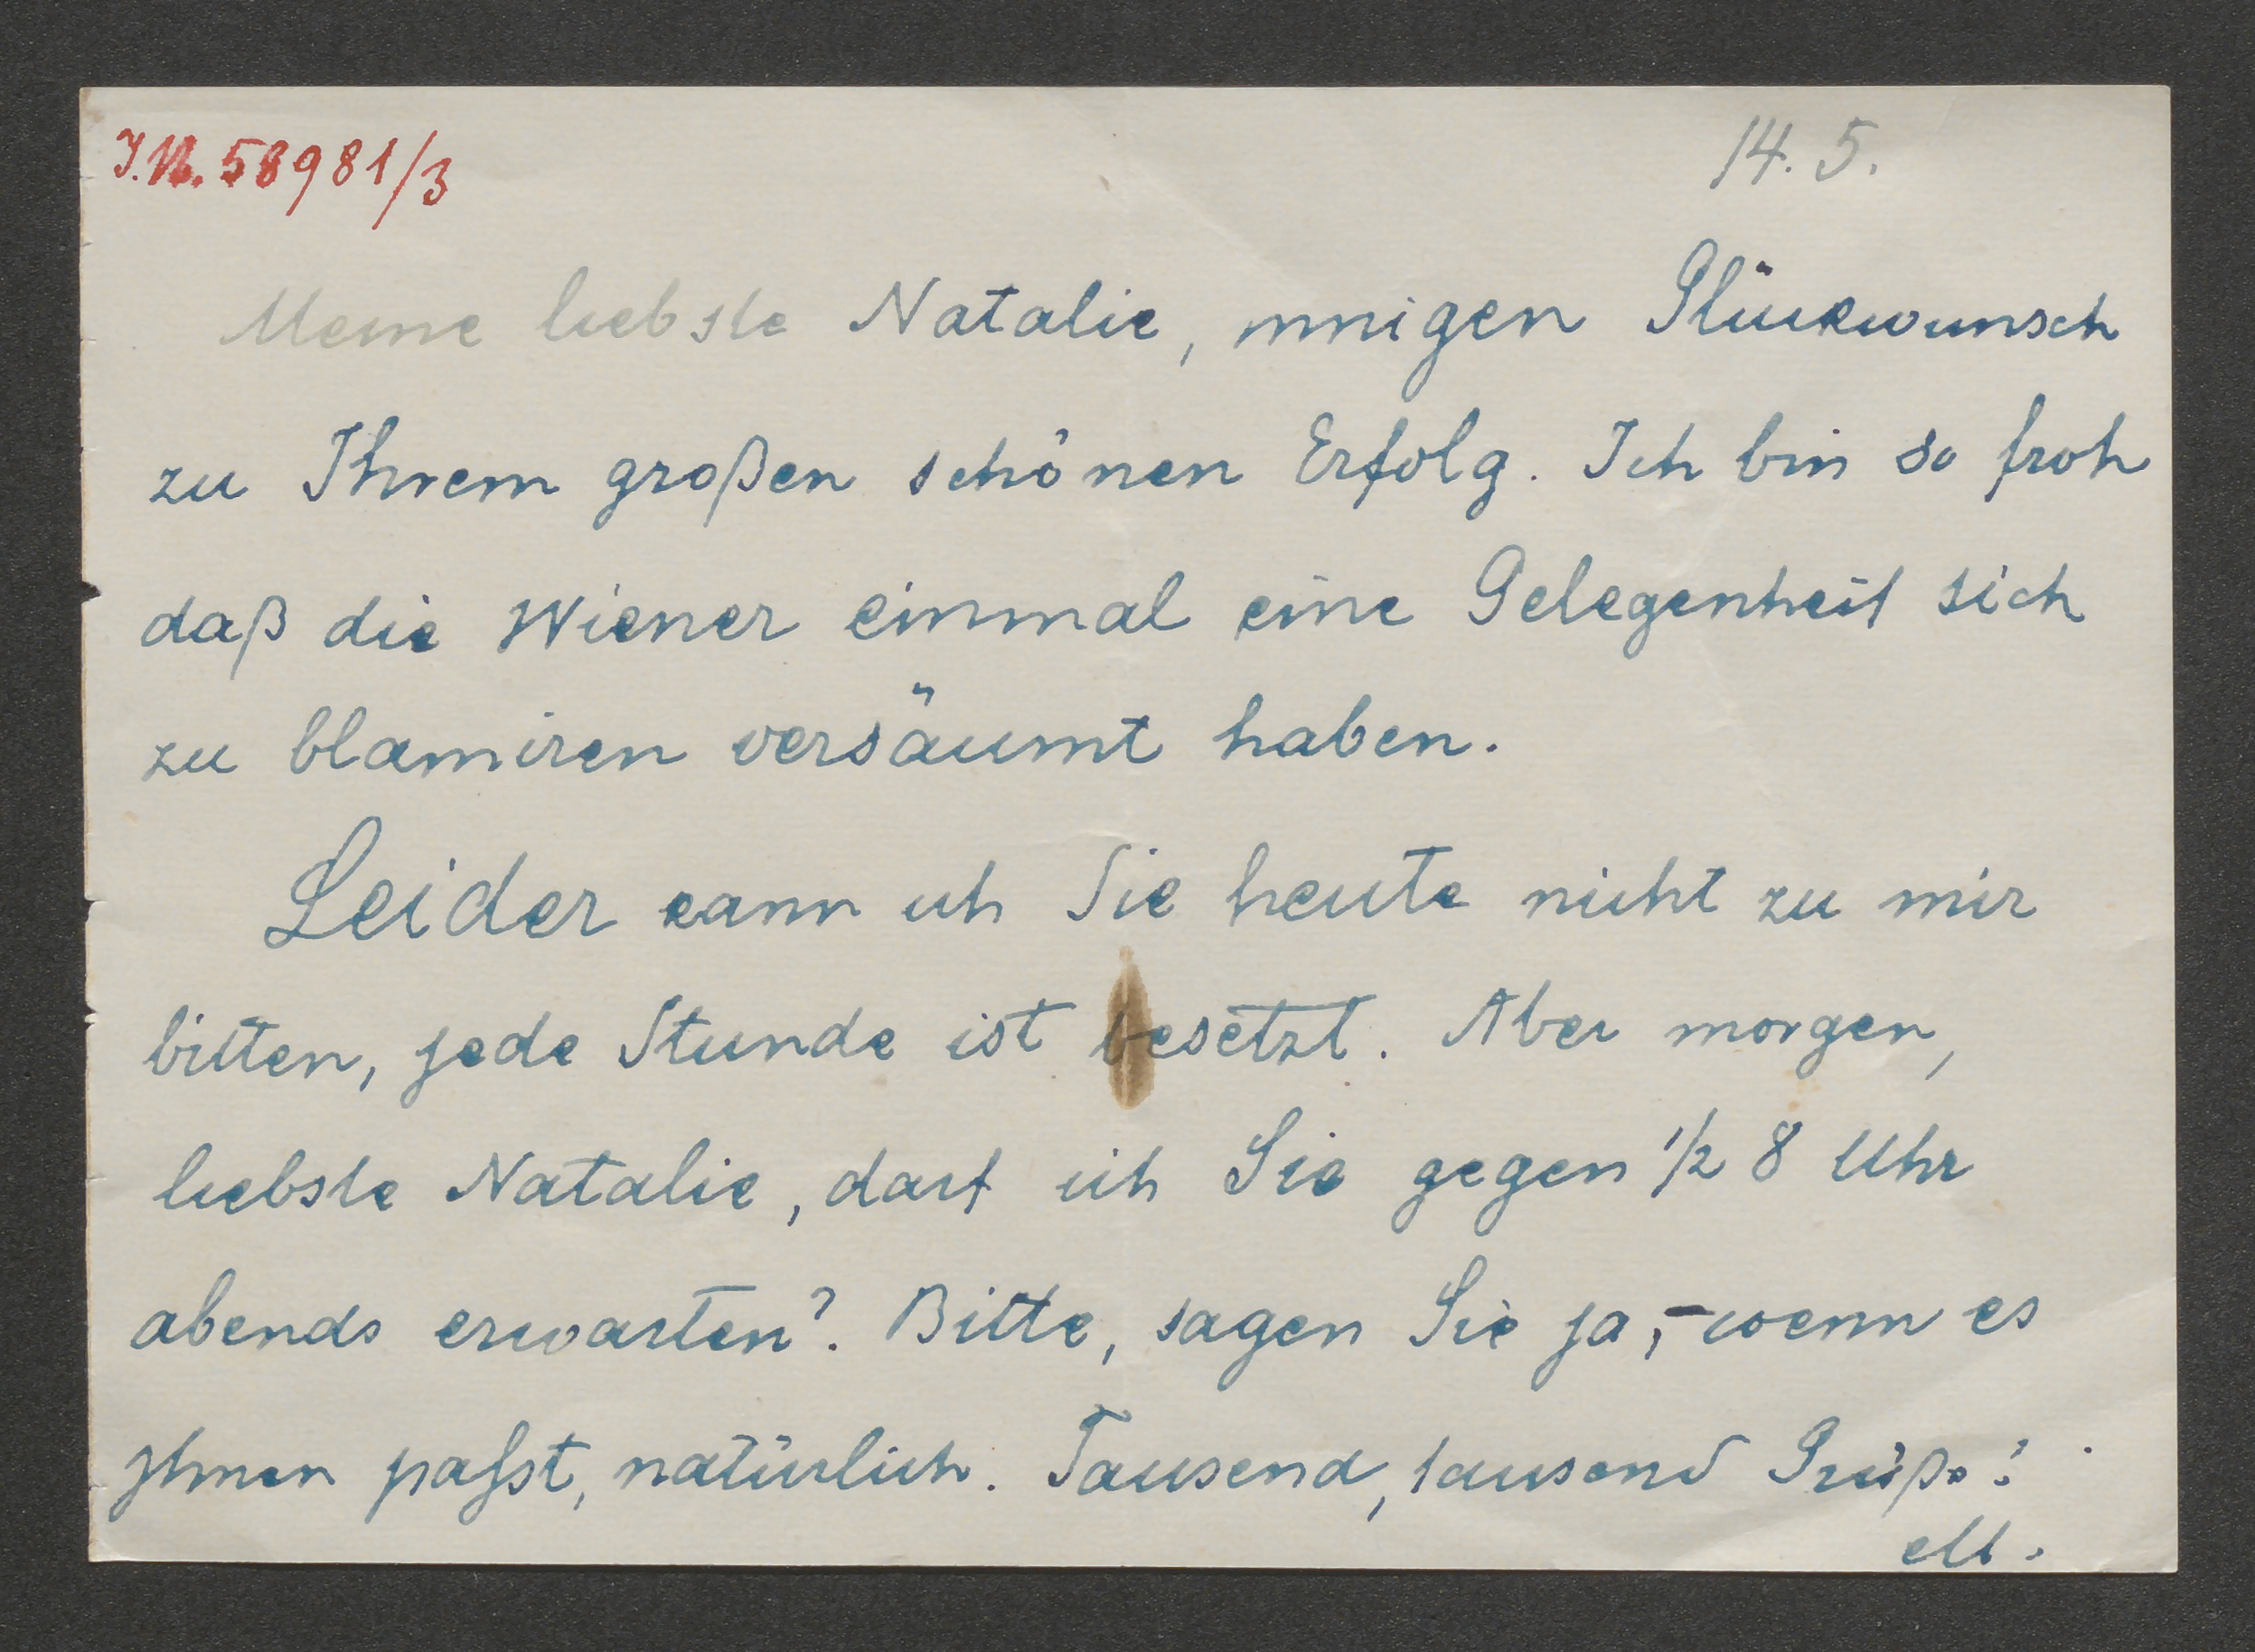 I.N. 58981/3
14. 5.
Meine liebste Natalie, innigen Glückwunsch
zu Ihrem großen schönen Erfolg. Ich bin so froh
daß die Wiener einmal eine Gelegenheit sich
zu blamiren versäumt haben.
Leider kann ich Sie heute nicht zu mir
bitten, jede Stunde ist besetzt. Aber morgen,
liebste Natalie, darf ich Sie gegen 1/2 8 Uhr
abends erwarten? Bitte, sagen Sie ja, – wenn es
Ihnen paſst, natürlich. Tausend, tausend Grüße!
M.